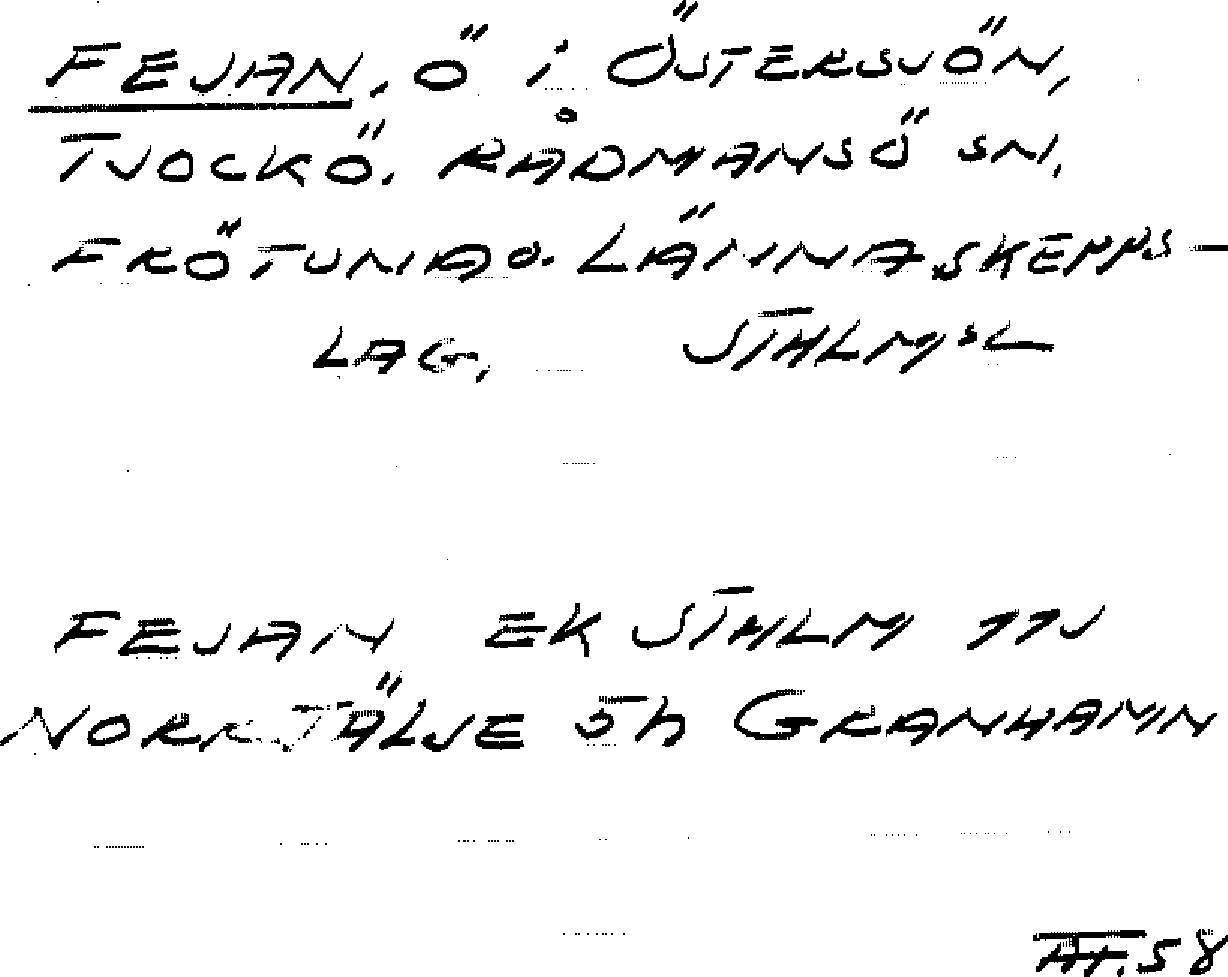 FEJAN, Ö i ÖSTERSJÖN,
TJOCKÖ. RÅDMANSÖ SN,
FRÖTUNA O. LÄNNA SKEPPS-
LAG, STHLMS L
FEJAN EK STHLM 11J
NORRTÄLJE 5h GRANHAMN
58